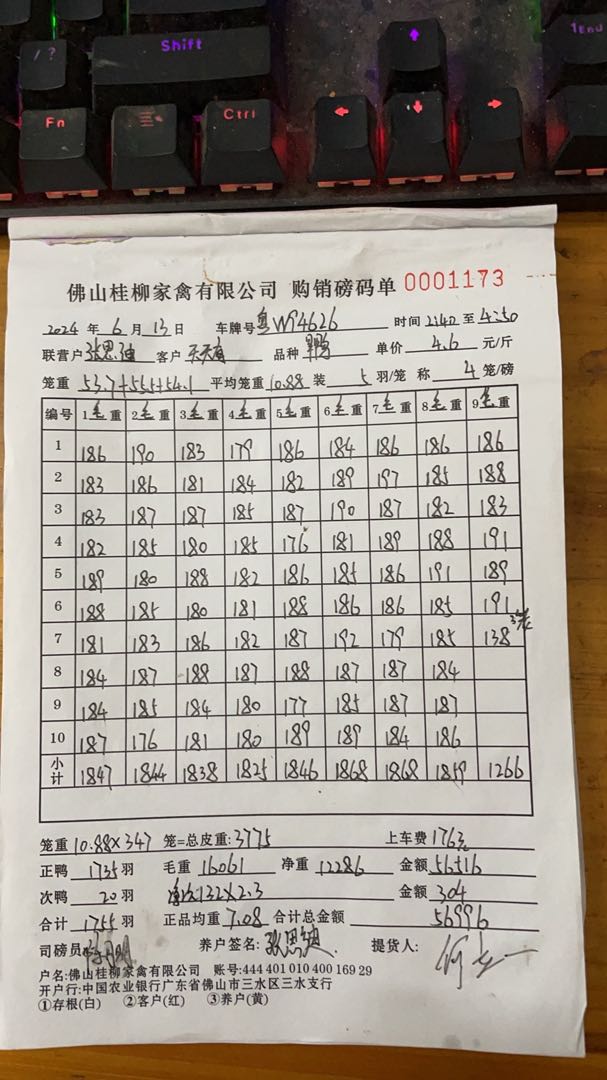 / ?
Shift
1End
Fn
Ctrl
佛山桂柳家禽有限公司 购销磅码单 0001173
2024 年 6 月 13 日 车牌号 粤W94626 时间 2:40 至 4:50
联营户 张思迪 客户 品种 单价 4.6 元/斤
笼重 53.7+55.1+54.1 平均笼重 10.88 装 5 羽/笼 称 4 笼/磅
编号 1毛重 2毛重 3毛重 4毛重 5毛重 6毛重 7毛重 8毛重 9毛重
1 186 190 183 179 186 184 186 186 186
2 183 186 181 184 182 189 197 185 188
3 183 187 187 185 187 190 187 182 183
4 182 185 180 185 176 181 189 188 191
5 189 180 188 182 186 185 186 191 189
6 188 185 180 181 188 186 186 185 191
7 181 183 186 182 187 192 179 185 138
8 184 187 188 187 188 187 187 184
9 184 185 184 180 177 185 187 187
10 187 176 181 180 189 189 184 186
小计 1847 1844 1838 1825 1846 1868 1868 1859 1266
笼重 10.88×347 笼=总皮重: 3775 上车费 176元
正鸭 1735 羽 毛重 16061 净重 12286 金额 56516
次鸭 20 羽 132×2.3 金额 304
合计 1755 羽 正品均重 7.08 合计总金额 56996
司磅员: 养户签名: 张思迪 提货人:
户名:佛山桂柳家禽有限公司 账号:444 401 010 400 169 29
开户行:中国农业银行广东省佛山市三水区三水支行
①存根(白) ②客户(红) ③养户(黄)